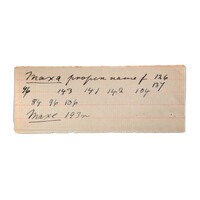 Maxa proper name f 126
96 143 141 142 104 137
84 96 106
Maxe 193m